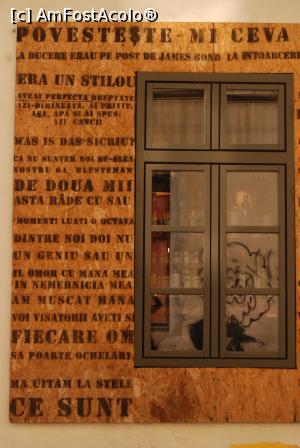 [c] AmFostAcolo®
POVESTEŞTE-MI CEVA
LA DUCERE ERAU PE POST DE JAMES BOND LA INTOARCERE
ERA UN STILOU
AVEAI PERFECTA DREPTATE
IZI-DIMINEATA, AI PRIVIT,
ASA, APA SI AI SPUS:
IZI CANCI!
WAS IS DAS SICRIU
CA NU SUNTEM NOI DE-ALEA
NOSTRU SA BLESTEMAM
DE DOUA MII
ASTA RÂDE CU SAU
MOMENT! LUATI O OCTAVA
DINTRE NOI DOI NU
UN GENIU SAU UN
IL OMOR CU MANA MEA
IN NEMERNICIA MEA
AM MUSCAT MANA
VOI VISATORII AVETI SI
FIECARE OM
SA POARTE OCHELARI
MA UITAM LA STELE
CE SUNT